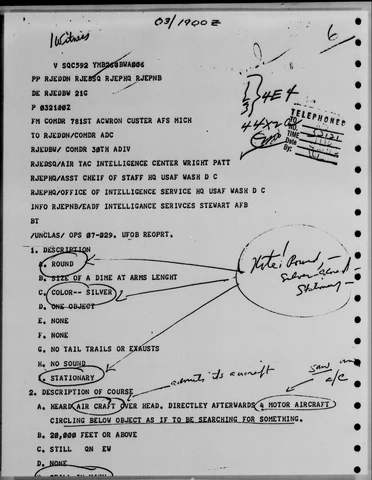 03/1900Z
1 Witness
6
V SQC592 YMB260BWA006
PP RJEDDN RJEBSQ RJEPHQ RJEPNB
DE RJEDBW 21G
P 032100Z
FM COMDR 781ST ACWRON CUSTER AFS MICH
TO RJEDDN/COMDR ADC
RJEDBW/ COMDR 30TH ADIV
RJEDSQ/AIR TAC INTELLIGENCE CENTER WRIGHT PATT
RJEPHQ/ASST CHEIF OF STAFF HQ USAF WASH D C
RJEPHQ/OFFICE OF INTELLIGENCE SERVICE HQ USAF WASH D C
INFO RJEPNB/EADF INTELLIGANCE SERIVCES STEWART AFB
BT
/UNCLAS/ OPS 07-029. UFOB REOPRT.
4E4
TELEPHONED
TO:
TIME
DATE
By:
1. DESCRIPTION
A. ROUND
B. SIZE OF A DIME AT ARMS LENGHT
C. COLOR-- SILVER
D. ONE OBJECT
E. NONE
F. NONE
G. NO TAIL TRAILS OR EXAUSTS
H. NO SOUND
I. STATIONARY
Note! Round -
Stationary -
2. DESCRIPTION OF COURSE
admits its aircraft
saw
a/c
A. HEARD AIR CRAFT OVER HEAD. DIRECTLEY AFTERWARDS 4 MOTOR AIRCRAFT
CIRCLING BELOW OBJECT AS IF TO BE SEARCHING FOR SOMETHING.
B. 20,000 FEET OR ABOVE
C. STILL QN EW
D. NONE